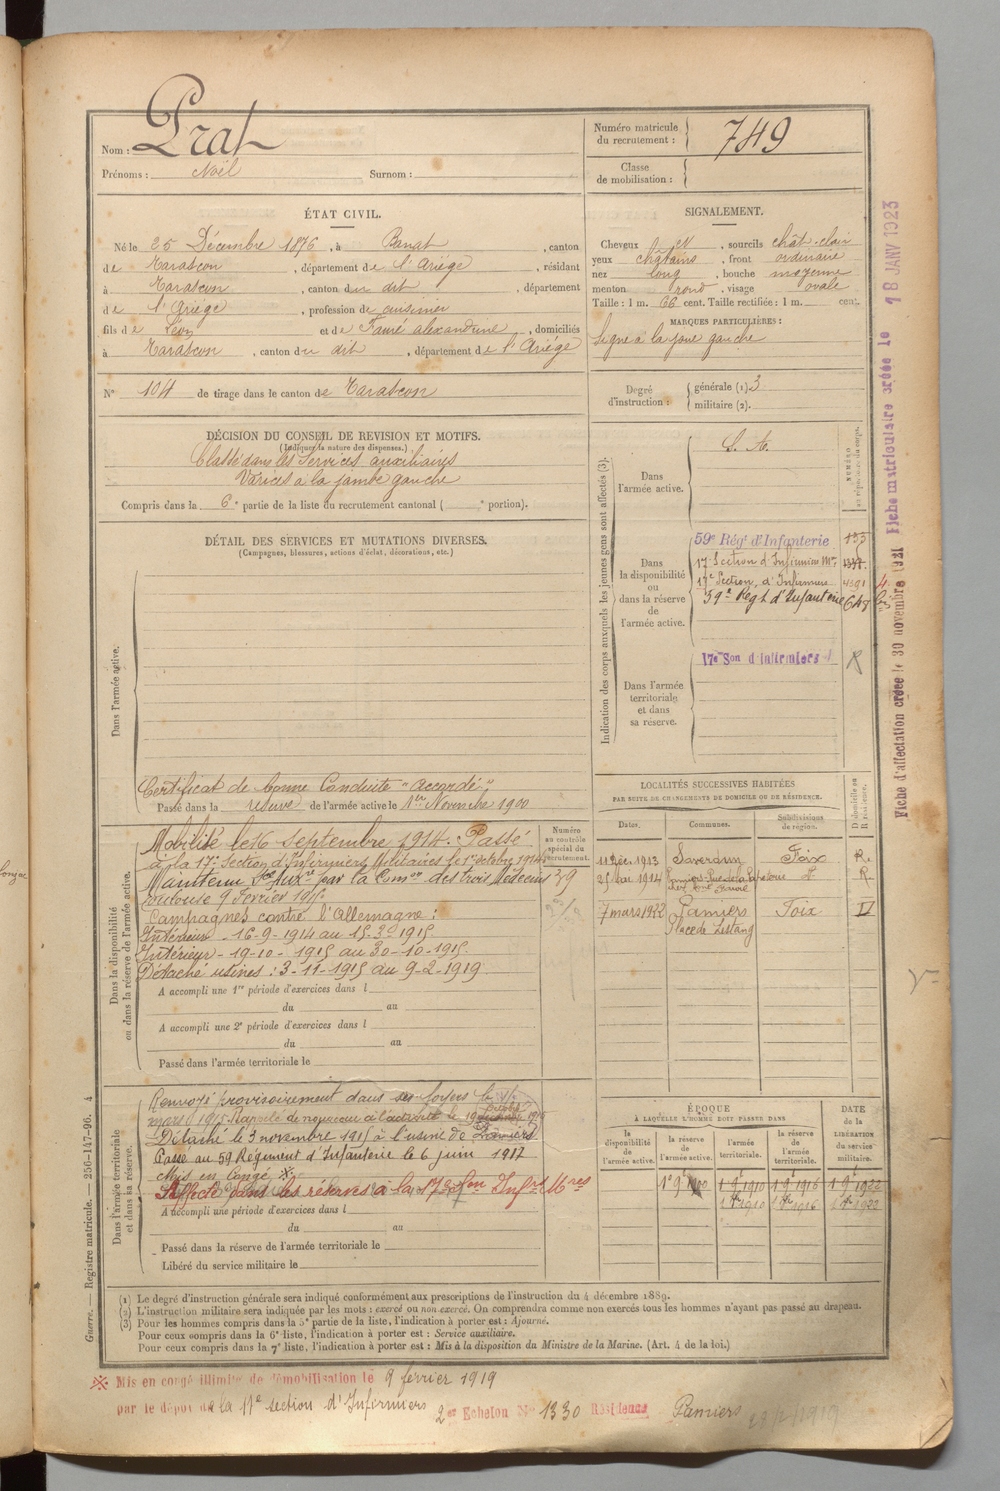 Nom : Prat
Prénoms : Noël Surnom :
Numéro matricule du recrutement : 749
Classe de mobilisation :
ÉTAT CIVIL.
Né le 25 Décembre 1876, à Banat, canton
de Tarascon, département de l'Ariége, résidant
à Tarascon, canton du dit, département
de l'Ariége, profession de cuisinier
fils de Léon et de Fauré alexandrine, domiciliés
à Tarascon, canton du dit, département de l'Ariége
N° 104 de tirage dans le canton de Tarascon
SIGNALEMENT.
Cheveux et, sourcils chât. clair
yeux châtains, front ordinaire
nez long, bouche moyenne
menton rond, visage ovale
Taille : 1 m. 66 cent. Taille rectifiée : 1 m. cent.
MARQUES PARTICULIÈRES :
Signe à la joue gauche
Degré d'instruction : générale (1). 3
militaire (2).
DÉCISION DU CONSEIL DE REVISION ET MOTIFS.
(Indiquer la nature des dispenses.)
Classé dans les Services auxiliaires
Varices à la jambe gauche
Compris dans la 6e partie de la liste du recrutement cantonal ( e portion).
DÉTAIL DES SERVICES ET MUTATIONS DIVERSES.
(Campagnes, blessures, actions d'éclat, décorations, etc.)
Dans l'armée active.
Certificat de bonne Conduite "accordé"
Passé dans la réserve de l'armée active le 1er Novembre 1900
Indication des corps auxquels les jeunes gens sont affectés (3).
NUMÉRO au répertoire du corps.
Dans l'armée active.
S. A.
Dans la disponibilité ou dans la réserve de l'armée active.
59e Régt d'Infanterie 155
17e Section d'Infirmiers Mres
17e Section d'Infirmiers 4391
59e Regt d'Infanterie
Dans l'armée territoriale et dans sa réserve.
17e Son d'Infirmiers
Dans la disponibilité ou dans la réserve de l'armée active.
Numéro au contrôle spécial du recrutement.
Mobilisé le 16 Septembre 1914. Passé
à la 17e Section d'Infirmiers Militaires le 1er octobre 1914
Maintenu Sce Auxre par la Comon des trois Médecins
Toulouse 9 Février 1915
Campagnes contre l'Allemagne :
Intérieur - 16-9-1914 au 15-3-1915
Intérieur - 19-10-1915 au 30-10-1915
Détaché usines : 3-11-1915 au 9-2-1919
A accompli une 1re période d'exercices dans l
du au
A accompli une 2e période d'exercices dans l
du au
Passé dans l'armée territoriale le
LOCALITÉS SUCCESSIVES HABITÉES
PAR SUITE DE CHANGEMENTS DE DOMICILE OU DE RÉSIDENCE.
Dates. Communes. Subdivisions de région. D domicile ou R résidence.
11 Déc. 1913 Saverdun Foix R.
25 Mai 1914 Pamiers d° R.
7 mars 1922 Pamiers Foix D
Place de Lestang
Dans l'armée territoriale et dans sa réserve.
Renvoyé provisoirement dans ses foyers le 15
mars 1915 Rappelé de nouveau à l'activité le 19 octobre 1915
Détaché le 3 novembre 1915 à l'usine de Pamiers
Passé au 59 Régiment d'Infanterie le 6 juin 1917
Mis en Congé ※
Affecté dans les réserves à la 17e Son Infrs Mres
A accompli une période d'exercices dans l
du au
Passé dans la réserve de l'armée territoriale le
Libéré du service militaire le
ÉPOQUE
À LAQUELLE L'HOMME DOIT PASSER DANS
la disponibilité de l'armée active. la réserve de l'armée active. l'armée territoriale. la réserve de l'armée territoriale. DATE de la LIBÉRATION du service militaire.
1er 9 1900 1 9 1910 1 9 1916 1 9 1922
(1) Le degré d'instruction générale sera indiqué conformément aux prescriptions de l'instruction du 4 décembre 1889.
(2) L'instruction militaire sera indiquée par les mots : exercé ou non exercé. On comprendra comme non exercés tous les hommes n'ayant pas passé au drapeau.
(3) Pour les hommes compris dans la 5e partie de la liste, l'indication à porter est : Ajourné.
Pour ceux compris dans la 6e liste, l'indication à porter est : Service auxiliaire.
Pour ceux compris dans la 7e liste, l'indication à porter est : Mis à la disposition du Ministre de la Marine. (Art. 4 de la loi.)
※ Mis en congé illimité de démobilisation le 9 février 1919
par le dépôt de la 17e section d'Infirmiers 2e Echelon N° 1330 Résidence Pamiers
28/2/1919
Guerre. — Registre matricule. — 256-147-96. 4
Fiche matriculaire créée le 18 JANV 1923
Fiche d'affectation créée le 30 novembre 1921